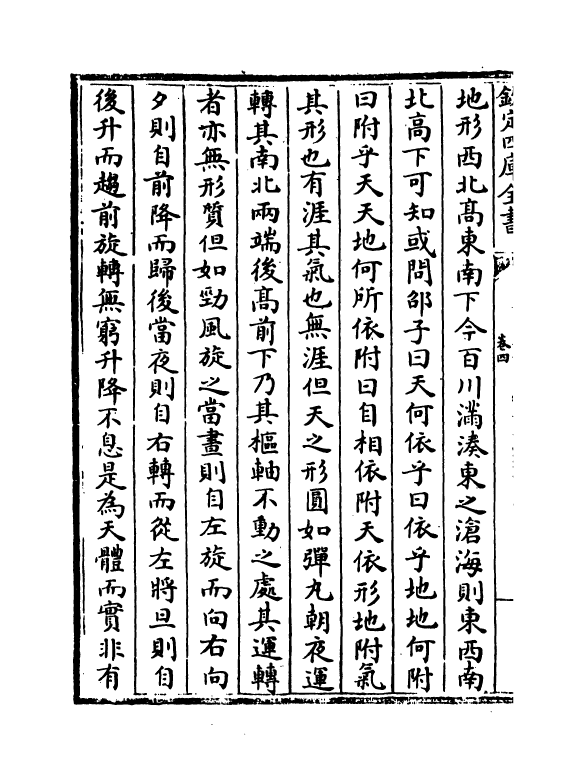 欽定四庫全書
卷四
地形西北髙東南下今百川滿湊東之滄海則東西南
北高下可知或問邵子曰天何依乎曰依乎地地何附
曰附乎天天地何所依附曰自相依附天依形地附氣
其形也有涯其氣也無涯但天之形圓如彈丸朝夜運
轉其南北兩端後髙前下乃其樞軸不動之處其運轉
者亦無形質但如勁風旋之當晝則自左旋而向右向
夕則自前降而歸後當夜則自右轉而從左將旦則自
後升而趨前旋轉無窮升降不息是為天體而實非有